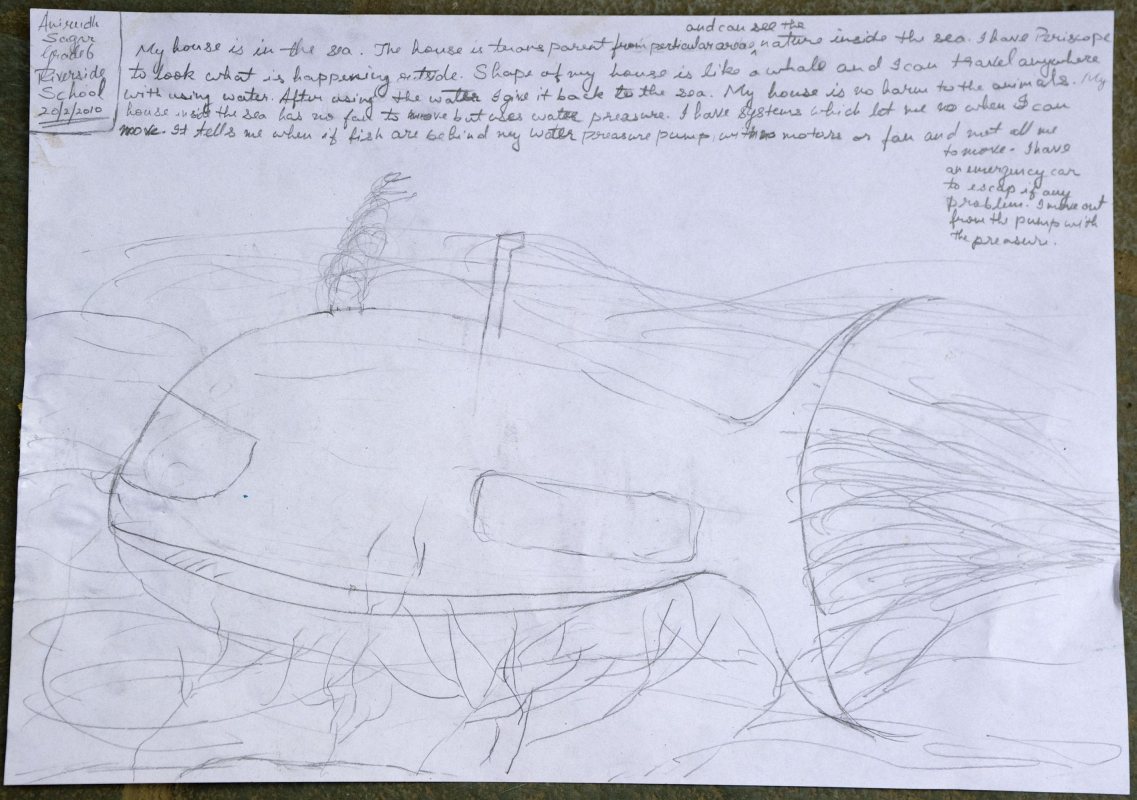 Anirudh
Sagar
Grade 6
Riverside
School
20/2/2010
and can see the
My house is in the sea. The house is transparent from perticular areas ^ nature inside the sea. I have Periscope
to look what is happening outside. Shape of my house is like a whale and I can travel anywhere
with using water. After using the water I give it back to the sea. My house is no harm to the animals. My
house inside the sea has no fan to move but uses water preasure. I have systems which let me no when I can
move. It tells me when if fish are behind my water preasure pump, with no motors or fan and not all me
to move. I have
an emergency car
to escap if any
problem. I move out
from the pump with
the preasure.